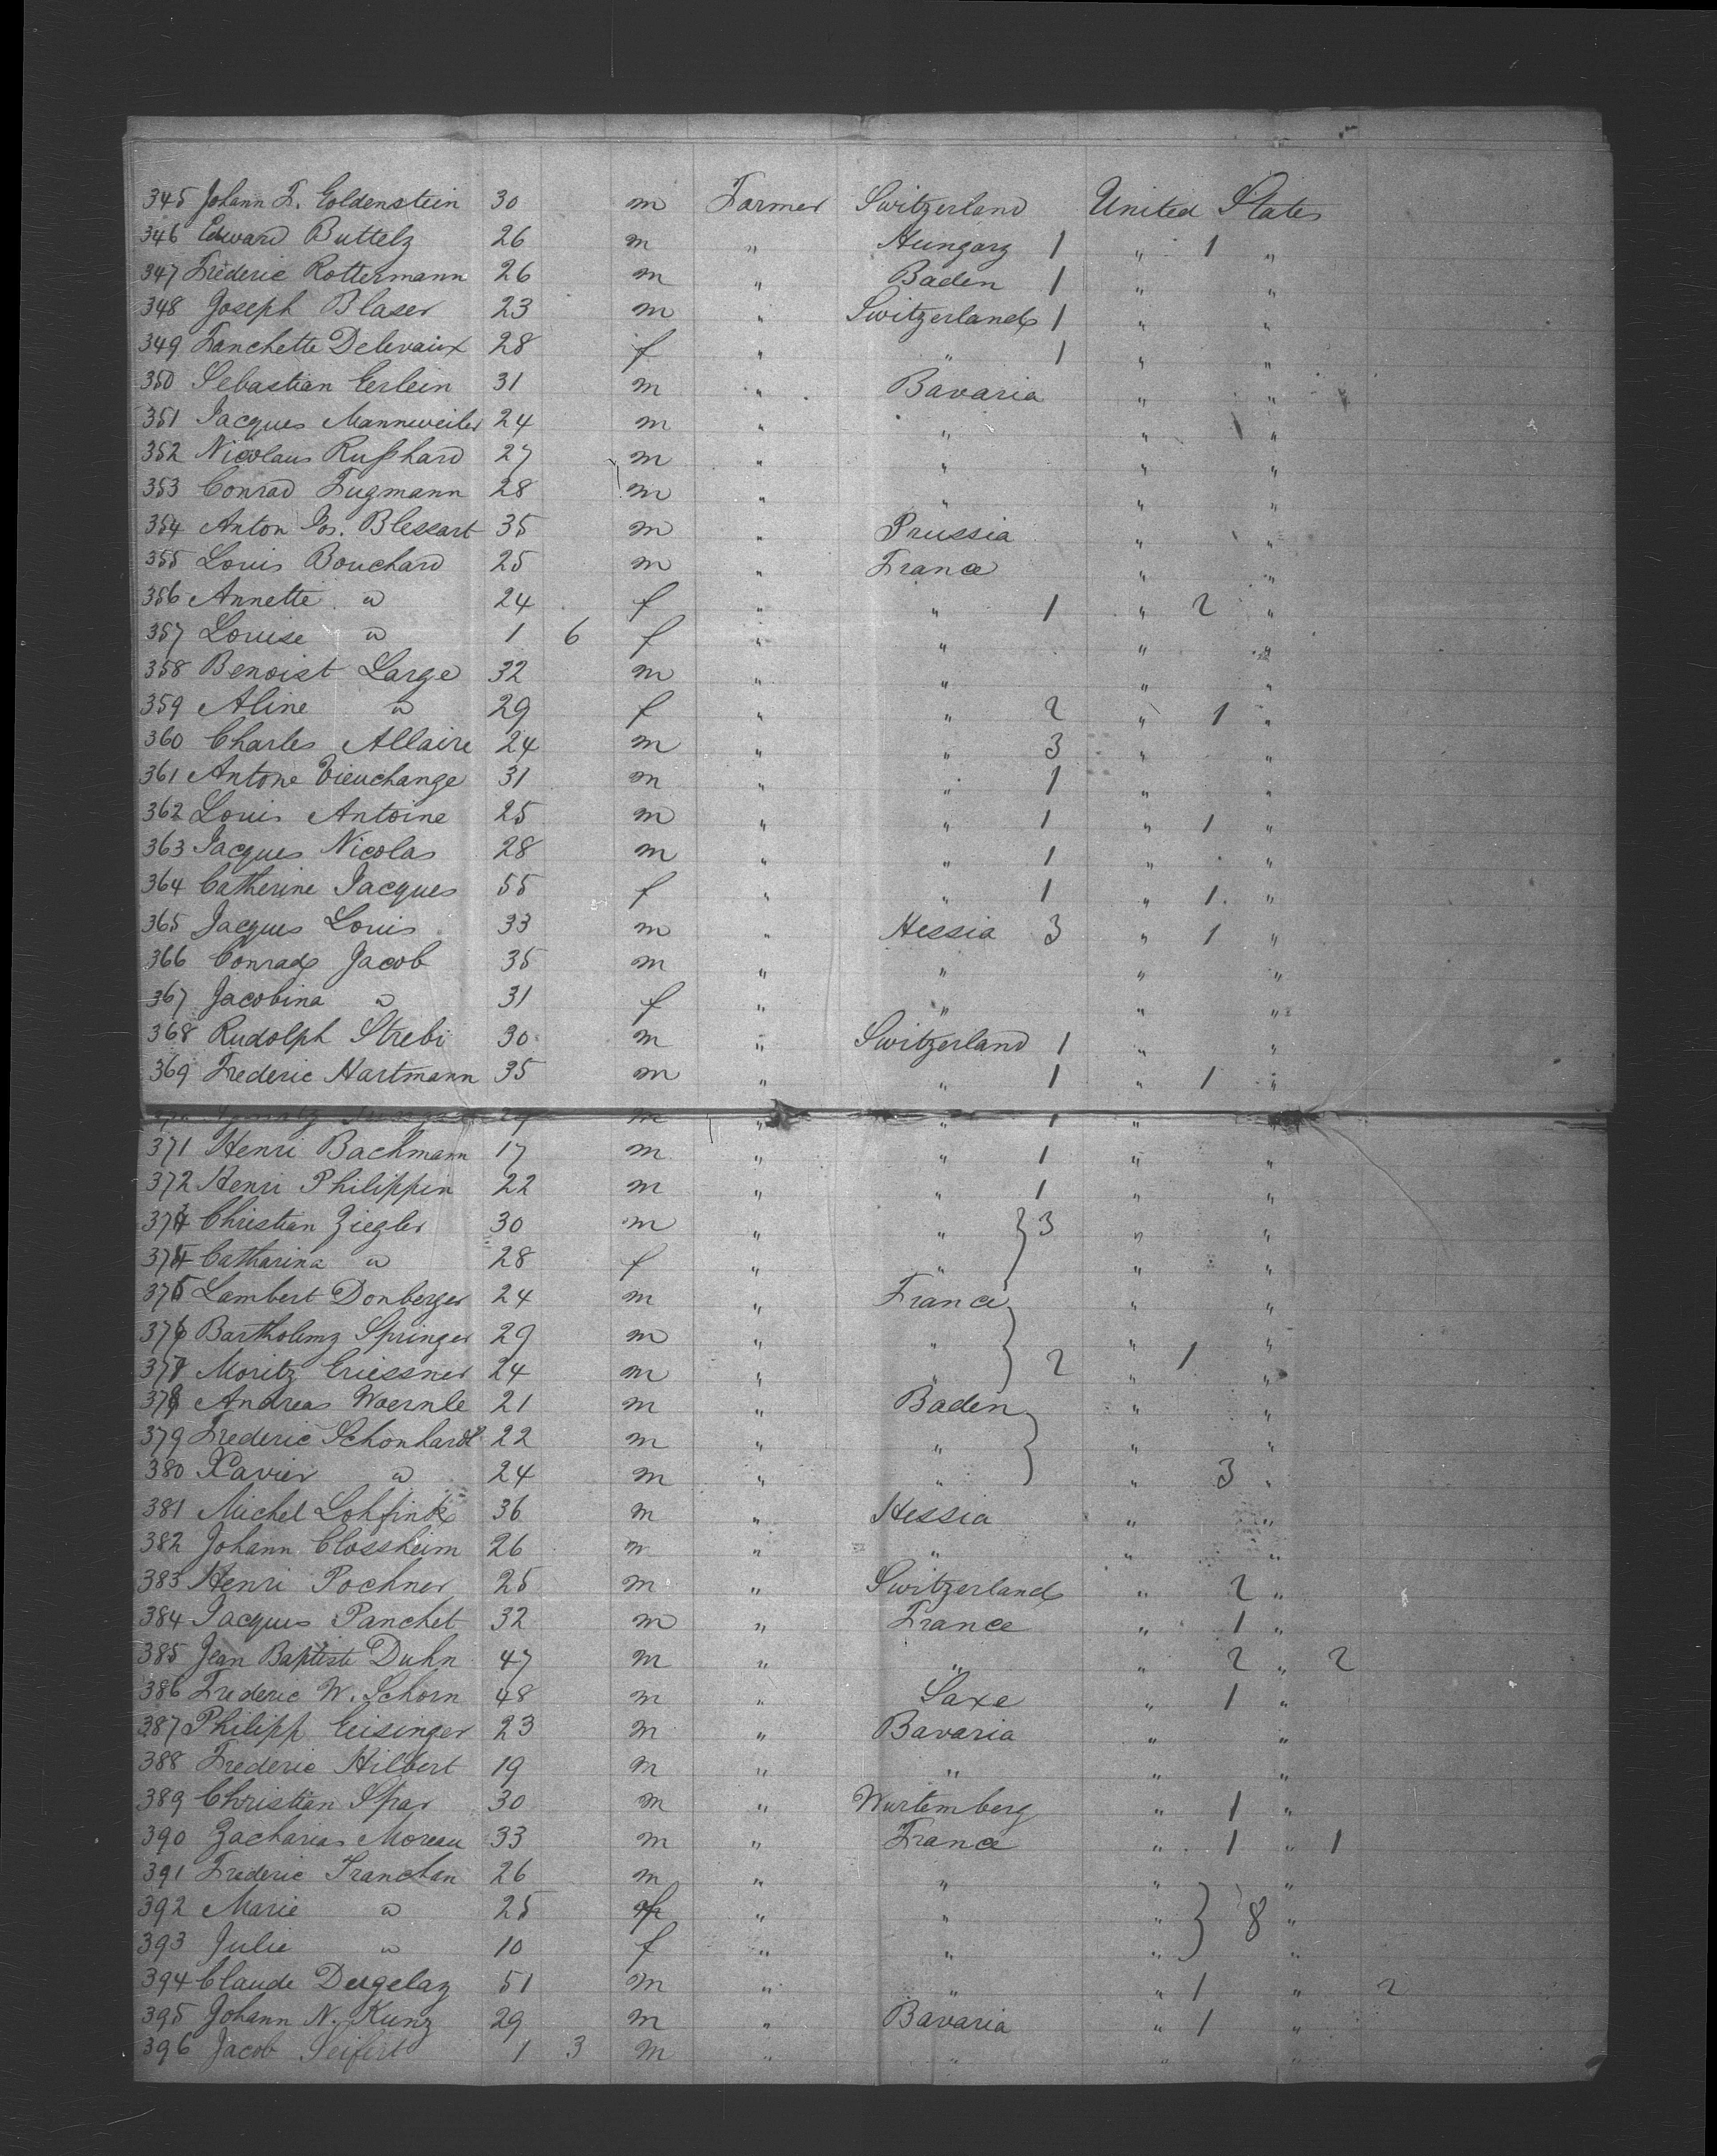 345 Johann F. Goldenstein 30 m Farmer Switzerland United States
346 Edward Buttelz 26 m " Hungary 1 " 1 "
347 Frederic Rottermann 26 m " Baden 1 " "
348 Joseph Blaser 23 m " Switzerland 1 " "
349 Fanchette Delevaux 28 f " " 1 " "
350 Sebastian Eerlein 31 m " Bavaria " "
351 Jacques Mannweiler 24 m " " " "
352 Nicolaus Rußhard 27 m " " " "
353 Conrad Fugmann 28 m " " " "
354 Anton Jos. Blessart 35 m " Prussia " "
355 Louis Bouchard 25 m " France " "
356 Annette " 24 f " " 1 " 2 "
357 Louise " 1 6 f " " " "
358 Benoist Large 32 m " " " "
359 Aline " 29 f " " 2 " 1 "
360 Charles Allaire 24 m " " 3 " "
361 Antone Vieuchange 31 m " " 1 " "
362 Louis Antoine 25 m " " 1 " 1 "
363 Jacques Nicolas 28 m " " 1 " "
364 Catherine Jacques 55 f " " 1 " 1 "
365 Jacques Louis 33 m " Hessia 3 " 1 "
366 Conrad Jacob 35 m " " " "
367 Jacobina " 31 f " " " "
368 Rudolph Strebi 30 m " Switzerland 1 " "
369 Frederic Hartmann 35 m " " 1 " 1 "
m " " 1 " "
371 Henri Bachmann 17 m " " 1 " "
372 Henri Philippin 22 m " " 1 " "
373 Christian Ziegler 30 m " " 3 " "
374 Catharina " 28 f " " " "
375 Lambert Donberger 24 m " France " "
376 Bartholemy Springer 29 m " " " "
377 Moritz Griessner 24 m " " 2 " 1 "
378 Andreas Woernle 21 m " Baden " "
379 Frederic Schonhardt 22 m " " " "
380 Xavier " 24 m " " " 3 "
381 Michel Lohfink 36 m " Hessia " "
382 Johann Clossheim 26 m " " " "
383 Henri Pochner 25 m " Switzerland " 2 "
384 Jacques Panchet 32 m " France " 1 "
385 Jean Baptiste Duhn 47 m " " " 2 " 2
386 Frederic W. Schorn 48 m " Saxe " 1 "
387 Philipp Geisinger 23 m " Bavaria " "
388 Frederic Hilbert 19 m " " " "
389 Christian Spar 30 m " Wurtemberg " 1 "
390 Zacharias Moreau 33 m " France " 1 " 1
391 Frederic Tranchan 26 m " " " "
392 Marie " 25 f " " " 8 "
393 Julie " 10 f " " " "
394 Claude Dergelaz 51 m " " " 1 " 2
395 Johann N. Kunz 29 m " Bavaria " 1 "
396 Jacob Seifert 1 3 m " " " "